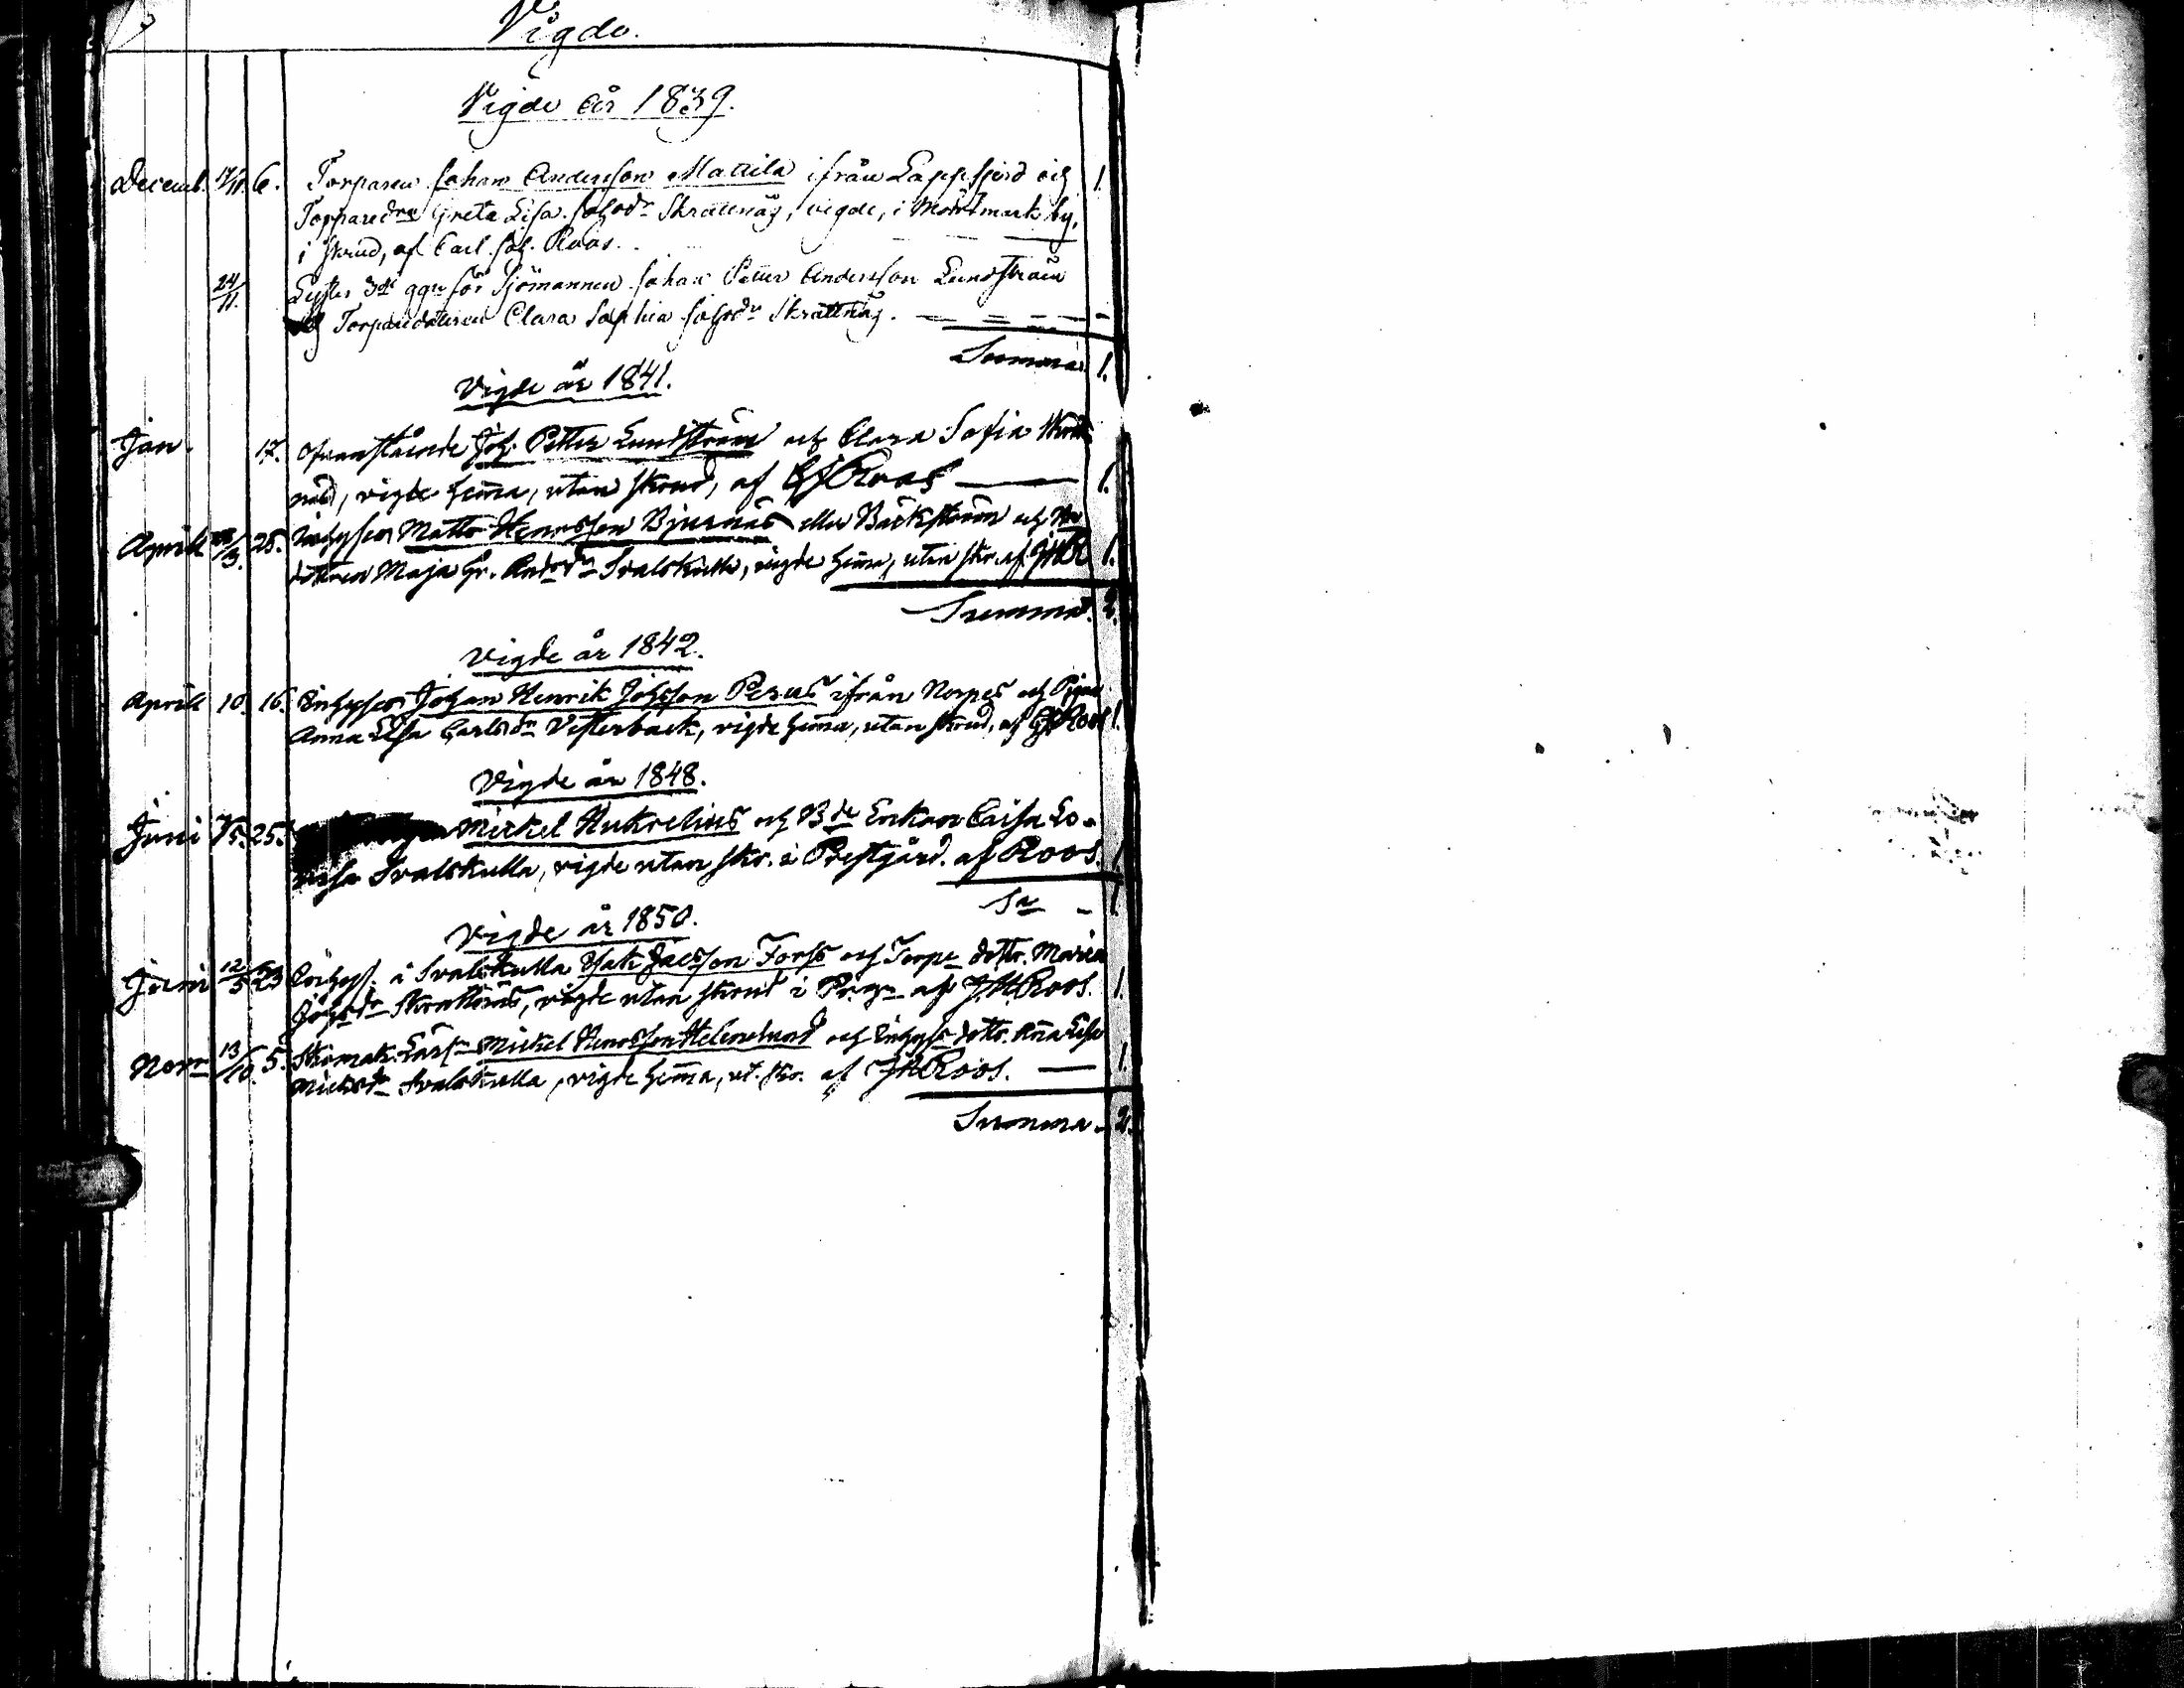 Vigde.
Vigde år 1839.
Decemb. 17/11. 6. Torparen Johan Andersson Mattila ifrån Lappfjerd och 1.
Torparedrn Greta Lisa Johsdr Skrattnäs, vigde, i Mörtmark by,
i skrud, af Carl Joh. Roos.
24/11. Lystes 3dje ggn för Sjömannen Johan Petter Andersson Lundström
och Torparedottren Clara Sophia Johsdr Skrattnäs. — — — —
Summa 1.
Vigde år 1841.
Jan. 17. Ofvanstående Joh. Petter Lundström och Clara Sofia Skratt
näs, vigde hemma, utan skrud, af CJRoos — 1.
April /3. 25. Inhyses Matts Henrsson Bjurnäs eller Bäckström och
dottren Maja Gr. Andersdr Svalskulla, vigde hemma, utan skr. af 1.
Summa. 2.
Vigde år 1842.
April 10. 16. Inhyses Johan Henrik Johsson Perus ifrån Nerpes och Pigan
Anna Lisa Carlsdr Vesterback, vigde hemma, utan skrud, af CJRoos 1.
Vigde år 1848.
Juni /5. 25. Mickel Hukrelius och Bde Enkan Caisa Lo-
visa Svalskulla, vigde utan skr. i Prestgård. af Roos. 1
Sa - 1.
Vigde år 1850.
Juni 12/5 23 Inhyss. å Svalskulla Isak Jacsson Forss och Torpe dottr. Maria
Johsdr Skrattnäs, vigde utan skrud i Prgn af J.H.Roos. 1.
Novr 13/10. 5. Skomak. Lärl. Mickel Henrsson Helenelund och Inhyse dottr. Anna Lisa
Mickelsdr Svalskulla, vigde hemma, ut. skr. af JHRoos. — 1.
Summa. 2.